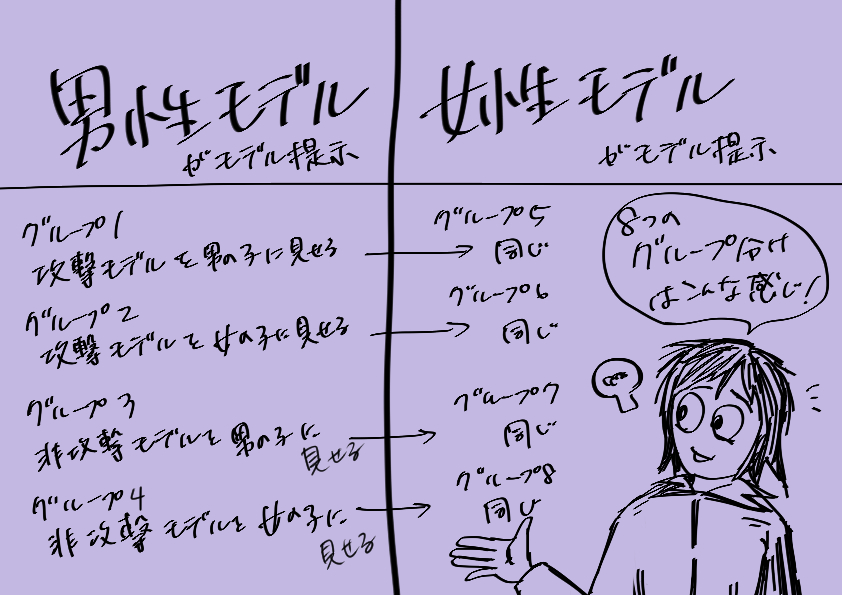 男性モデル
がモデル提示
グループ1
攻撃モデルを男の子に見せる
グループ2
攻撃モデルを女の子に見せる
グループ3
非攻撃モデルを男の子に
見せる
グループ4
非攻撃モデルを女の子に
見せる
女性モデル
がモデル提示
グループ5
同じ
グループ6
同じ
グループ7
同じ
グループ8
同じ
8つの
グループ分け
はこんな感じ!